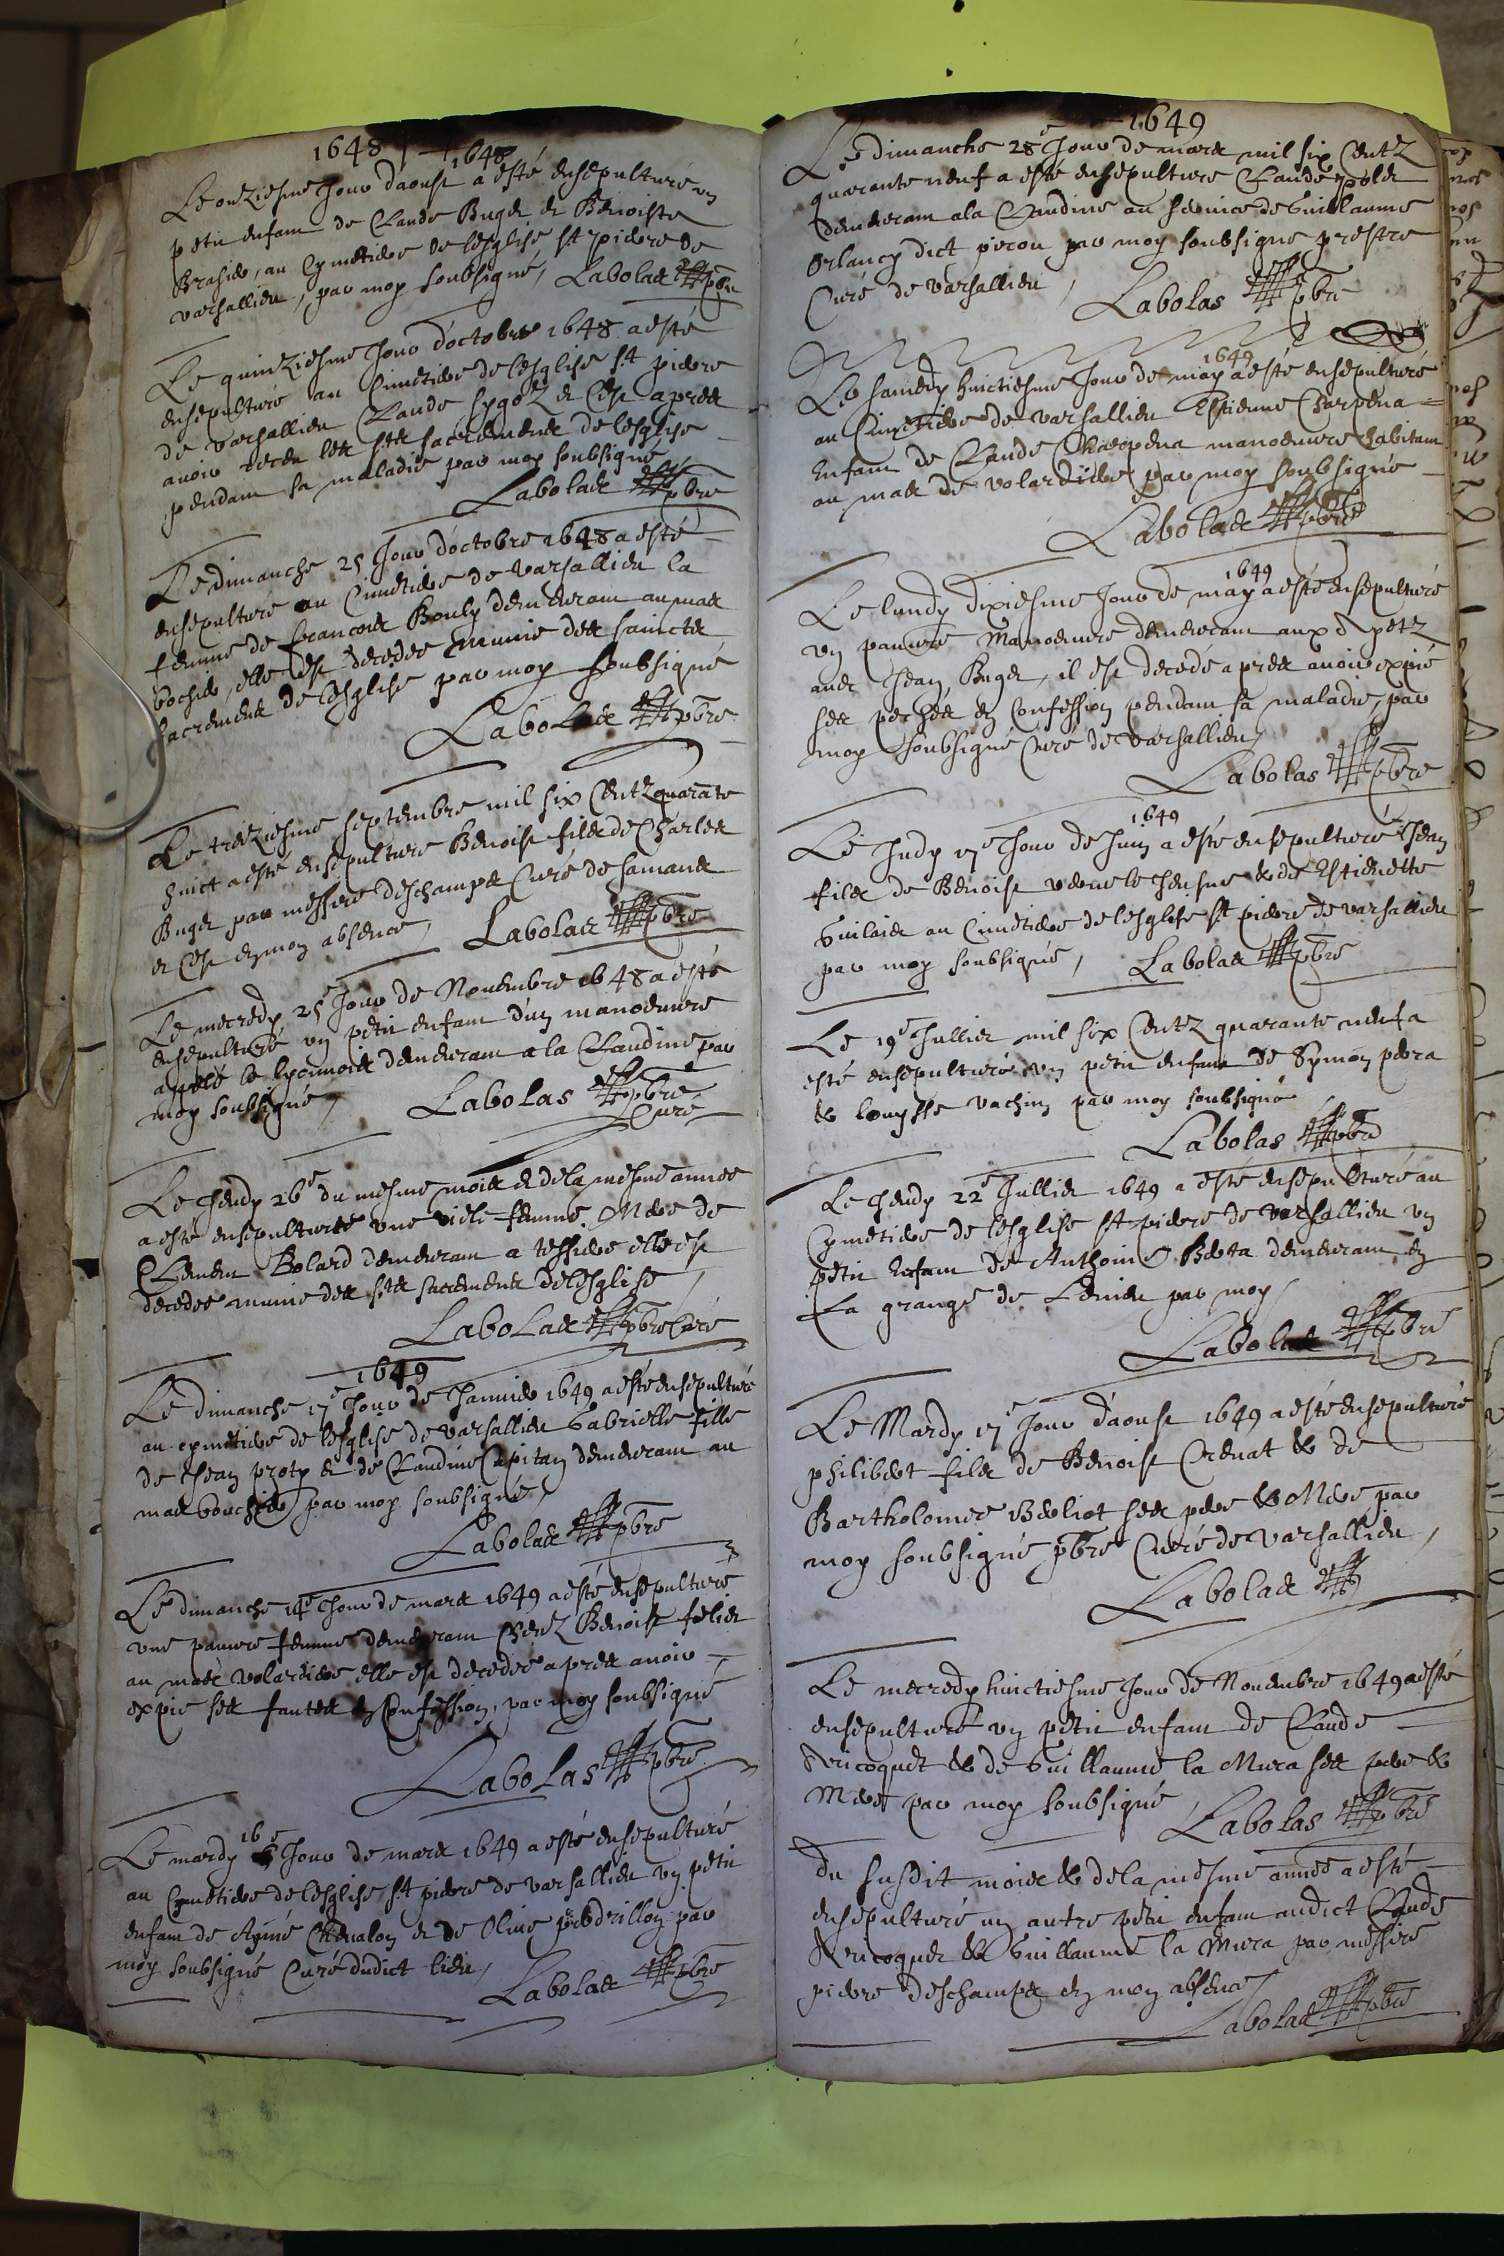 1648 1648
Le onziesme Jour daoust a esté ensepulturé un
petit enfant de Claude Buget et Benoiste
Brasier, au Cymetiere de lesglise st pierre de
varsallieu, par moy soubsigné, Labolas pbre
Le quinziesme Jour doctobre 1648 a esté
ensepulturé au Cimetiere de lesglise st pierre
de varsallieu Claude sygolz et Cest apres
avoir receu les stes sacrements de lesglise
pendant sa maladie par moy soubsigné
Labolas pbre
Le dimanche 25 Jour doctobre 1648 a esté
ensepulturé au Cimetiere de varsallieu la
femme de francois Bouly demeurant au mas
bochie, elle est decedee munie des saincts
sacrements de lesglise par moy soubsigné
Labolas pbre
Le treziesme septembre mil six Centz quarãte
huict a esté ensepulturé Benoist filz de Charles
Buget par messire deschamps Curé de samans
et Cest en mon absence, Labolas pbre
Le mecredy 25e Jour de Novembre 1648 a esté
ensepulturé un petit enfant dun manoeuvre
appelé le lyonnois demeurant a la Claudine par
moy soubsigné, Labolas pbre
Curé
Le Jeudy 26e du mesme mois et de la mesme annee
a esté ensepulturée une viele femme Mere de
Clement Bolard demeurant a tessiere elle est
decedee munie des stes sacrements de lesglise,
Labolas pbre Curé
1649
Le dimanche 17e Jour de Janvier 1649 a esté ensepulturé
au cymetiere de lesglise de varsallieu Gabrielle fille
de Jean proty et de Claudine Capitan demeurant au
mas bouchie par moy soubsigné,
Labolas pbre
Le dimanche 14e Jour de mars 1649 a esté ensepulturé
une pauvre femme demeurant Chez Benoist felix
au mas volardiere elle est decedee apres avoir
expie ses fautes en Confession, par moy soubsigné
Labolas pbre
16e
Le mardy Jour de mars 1649 a esté ensepulturé
au Cymetiere de lesglise st pierre de varsallieu un petit
enfant de Aymé Chevalon et de Olive perdrillon par
moy soubsigné Curé dudict lieu, Labolas pbre
1649
Le dimanche 28e Jour de mars mil six Centz
quarante neuf a esté ensepulturé Claude
demeurant a la Claudine au service de Guillaume
Orlancy dict pieron par moy soubsigné prestre
Curé de varsallieu, Labolas pbre
1649
Le samedy huictiesme Jour de may a esté ensepulturé
au Cimetiere de varsallieu Estienne Charpena
Enfant de Claude Charpena manoeuvre habitant
au mas de volardiere par moy soubsigné
Labolas pbre
1649
Le lundy dixiesme Jour de may a esté ensepulturé
un pauvre Manoeuvre demeurant aux
avec Jean Buget, il est decedé apres avoir expié
ses peches en Confession pendant sa maladie, par
moy soubsigné Curé de varsallieu,
Labolas pbre
1649
Le Judy 17e Jour de Juin a esté ensepulturé Jean
filz de Benoist vevue le Jeusne & de Estienette
Guilaier au Cimetiere de lesglise st pierre de varsallieu
par moy soubsigné, Labolas pbre
Le 19e Jullier mil six Centz quarante neuf a
esté ensepulturé un petit enfant de Symon pera
& Louysse vachin par moy soubsigné
Labolas pbre
Le Jeudy 22e Jullier 1649 a esté ensepulturé au
Cymetiere de lesglise st pierre de varsallieu un
petit Enfant de Anthoine Berta demeurant en
La grange de Lenieu par moy,
Labolas pbre
Le Mardy 17e Jour daoust 1649 a esté ensepulturé
philibert filz de Benoist Crenat & de
Bartholomee Berliot ses pere & Mere par
moy soubsigné pbre Curé de varsallieu,
Labolas
Le mecredy huictiesme Jour de Novembre 1649 a esté
ensepulturé un petit enfant de Claude
Bricoquet & de Guillaume la Mura ses pere &
Mere par moy soubsigné, Labolas pbre
du susdit mois & de la mesme annee a esté
ensepulturé un autre petit enfant audict Claude
Bricoquet & Guillaume la Mura par messire
pierre deschamps en mon absence,
Labolas pbre